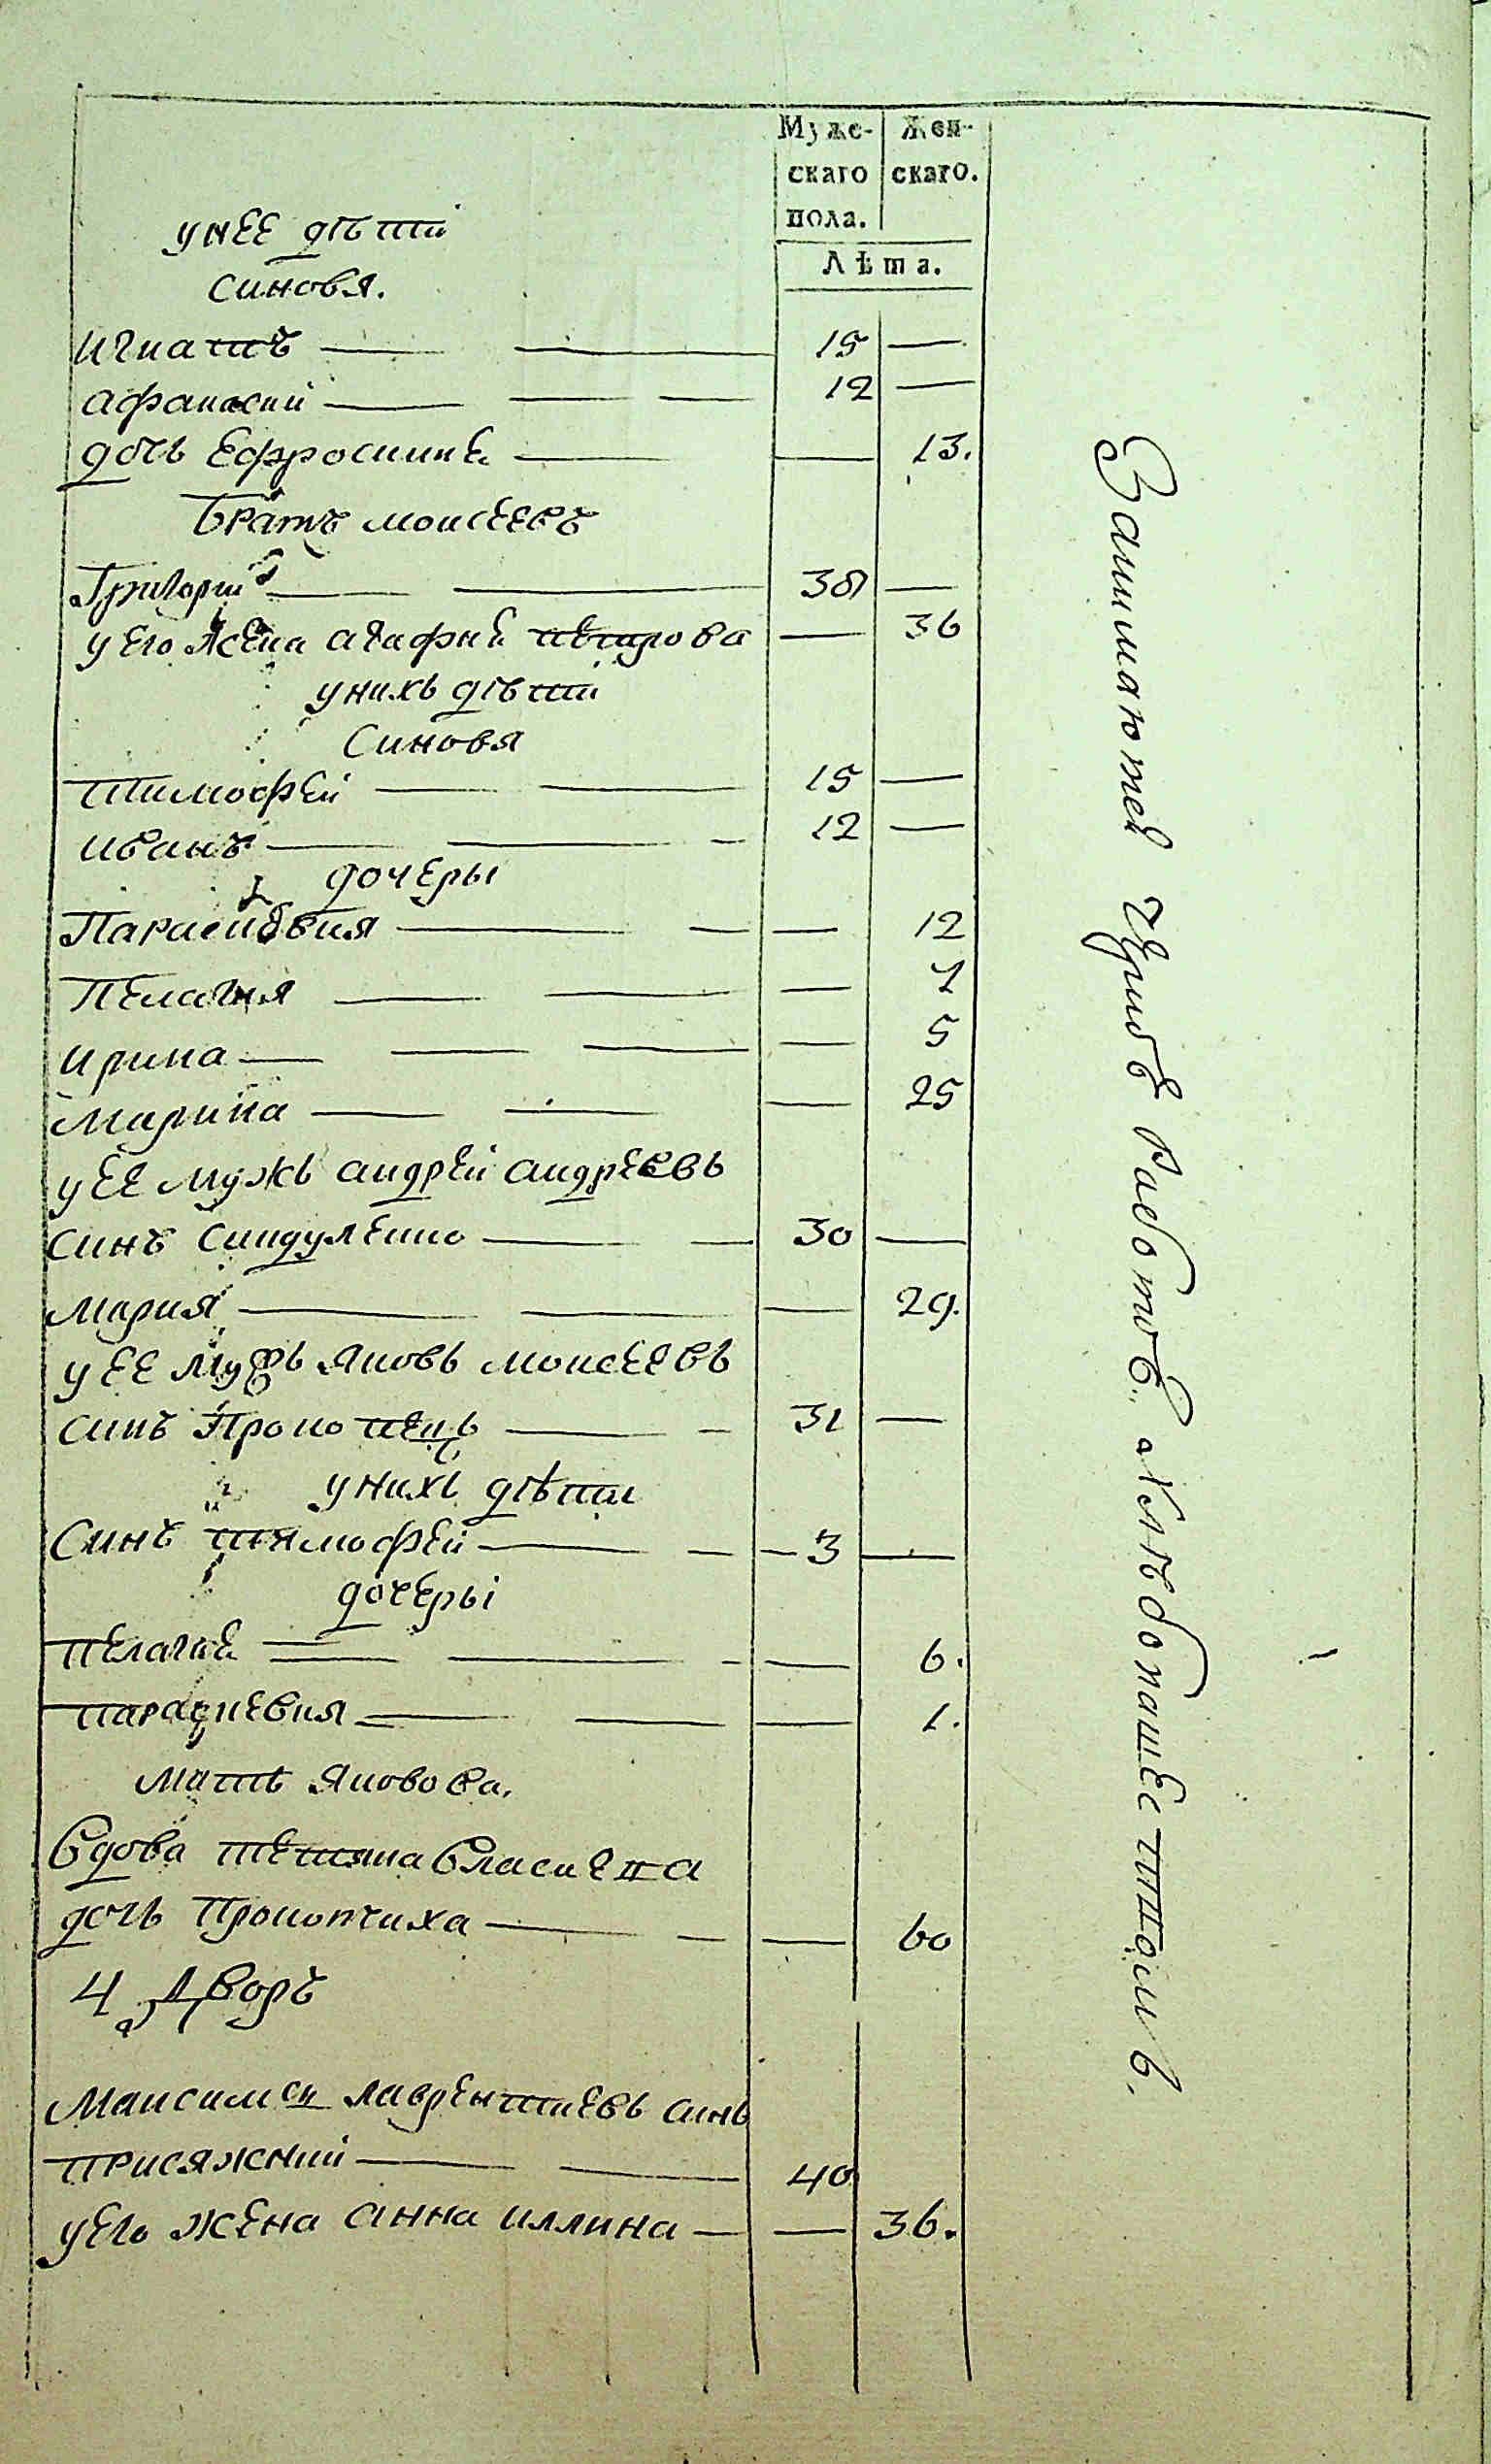 Муже-
скаго
пола.
Жен-
скаго.
Лѣта.
унеe дѣти
синовя.
игнатъ 15
афанасий 12
дочь Ефросиния 13.
Братъ моисеевъ
Григорий 38
у его жена агафия петрова 36
унихъ дѣти
Синовя
Тимофей 15
иванъ 12
дочеры
Параскевия 12
Пелагия 7
ирина 5
Марина 25
у ее мужъ андрей андреевъ
синъ Синдуленко 30
Мария 29.
у ее мужъ яковъ моисеевъ
синъ Прокопецъ 31
унихъ дѣти
Синъ тимофей 3
дочеры
Пелагия 6.
параскевия 1.
Мать яковова.
Вдова татияна власиева
дочь Прокопчиха 60
4, Дворъ
Максим лаврентиевъ синъ
присяжний 40
у его жена анна иллина 36.
Занимаются черной работой. хлѣбопашеством.